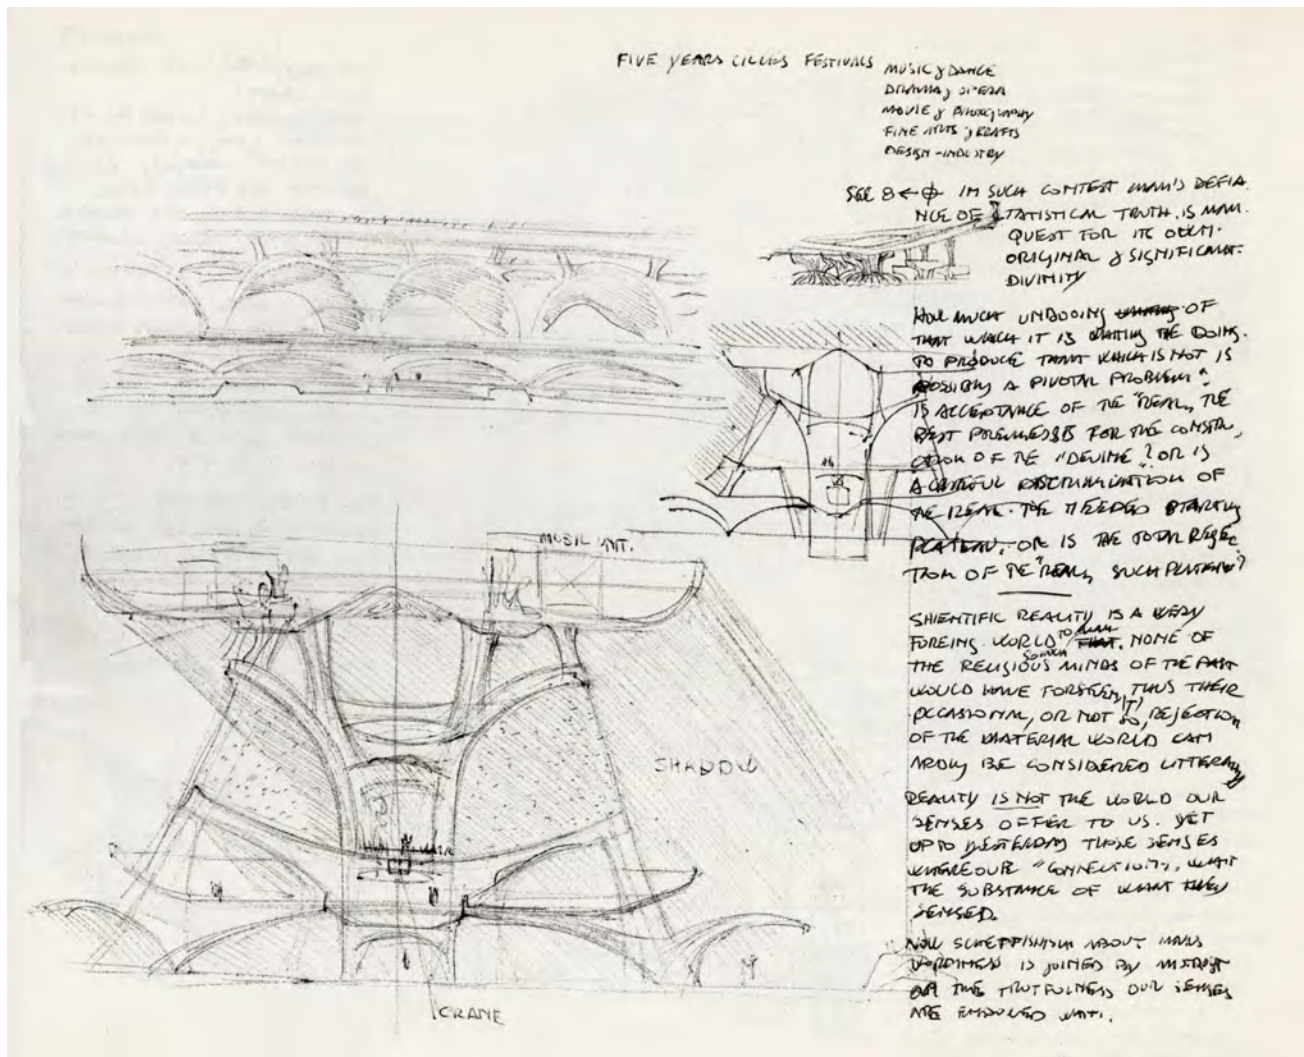 FIVE YEARS CICLES FESTIVALS
MUSIC & DANCE
DRAMA & OPERA
MOVIE & PHOTOGRAPHY
FINE ARTS & KRAFTS
DESIGN-INDUSTRY
SEE 8 ← IM SUCH CONTEST MAN'S DEFIA.
NCE OF STATISTICAL TRUTH, IS MAN.
QUEST FOR ITS OWN.
ORIGINAL & SIGNIFICANT.
DIVINITY
HOW MUCH UNDOOING OF
THAT WHICH IT IS THE DOING.
TO PRODUCE THAT WHICH IS NOT IS
POSSIBLY A PIVOTAL PROBLEM?
IS ACCEPTANCE OF TE "REAL" THE
BEST FOR THE CONSTRU
CTION OF TE "DEVINE"? OR IS
A CAREFUL DISCRIMINATION OF
THE REAL. THE NEEDED STARTING
PLATEAU, OR IS THE TOTAL REJEC
TION OF TE "REAL" SUCH PLATEAU?
MUSIC UNIT.
SHIENTIFIC REALITY IS A VERY
FOREING WORLD TO MAN. NONE OF
THE RELIGIOUS MINDS OF THE PAST
WOULD HAVE FORSEEN IT, THUS THEIR
OCCASIONAL, OR NOT SO, REJECTION
OF THE MATERIAL WORLD CAN
ARDLY BE CONSIDERED LITTERALY
SHADOW
REALITY IS NOT THE WORLD OUR
SENSES OFFER TO US. YET
UP TO YESTERDAY THOSE SENSES
WHERE OUR "CONNECTION" WHIT
THE SUBSTANCE OF WHAT THEY
SENSED.
NOW SCHEPPISHISM ABOUT MANS
IS JOINED BY MISTRUST
THE TRUTFULNESS OUR SENSES
ARE ENDOWED WHIT.
CRANE